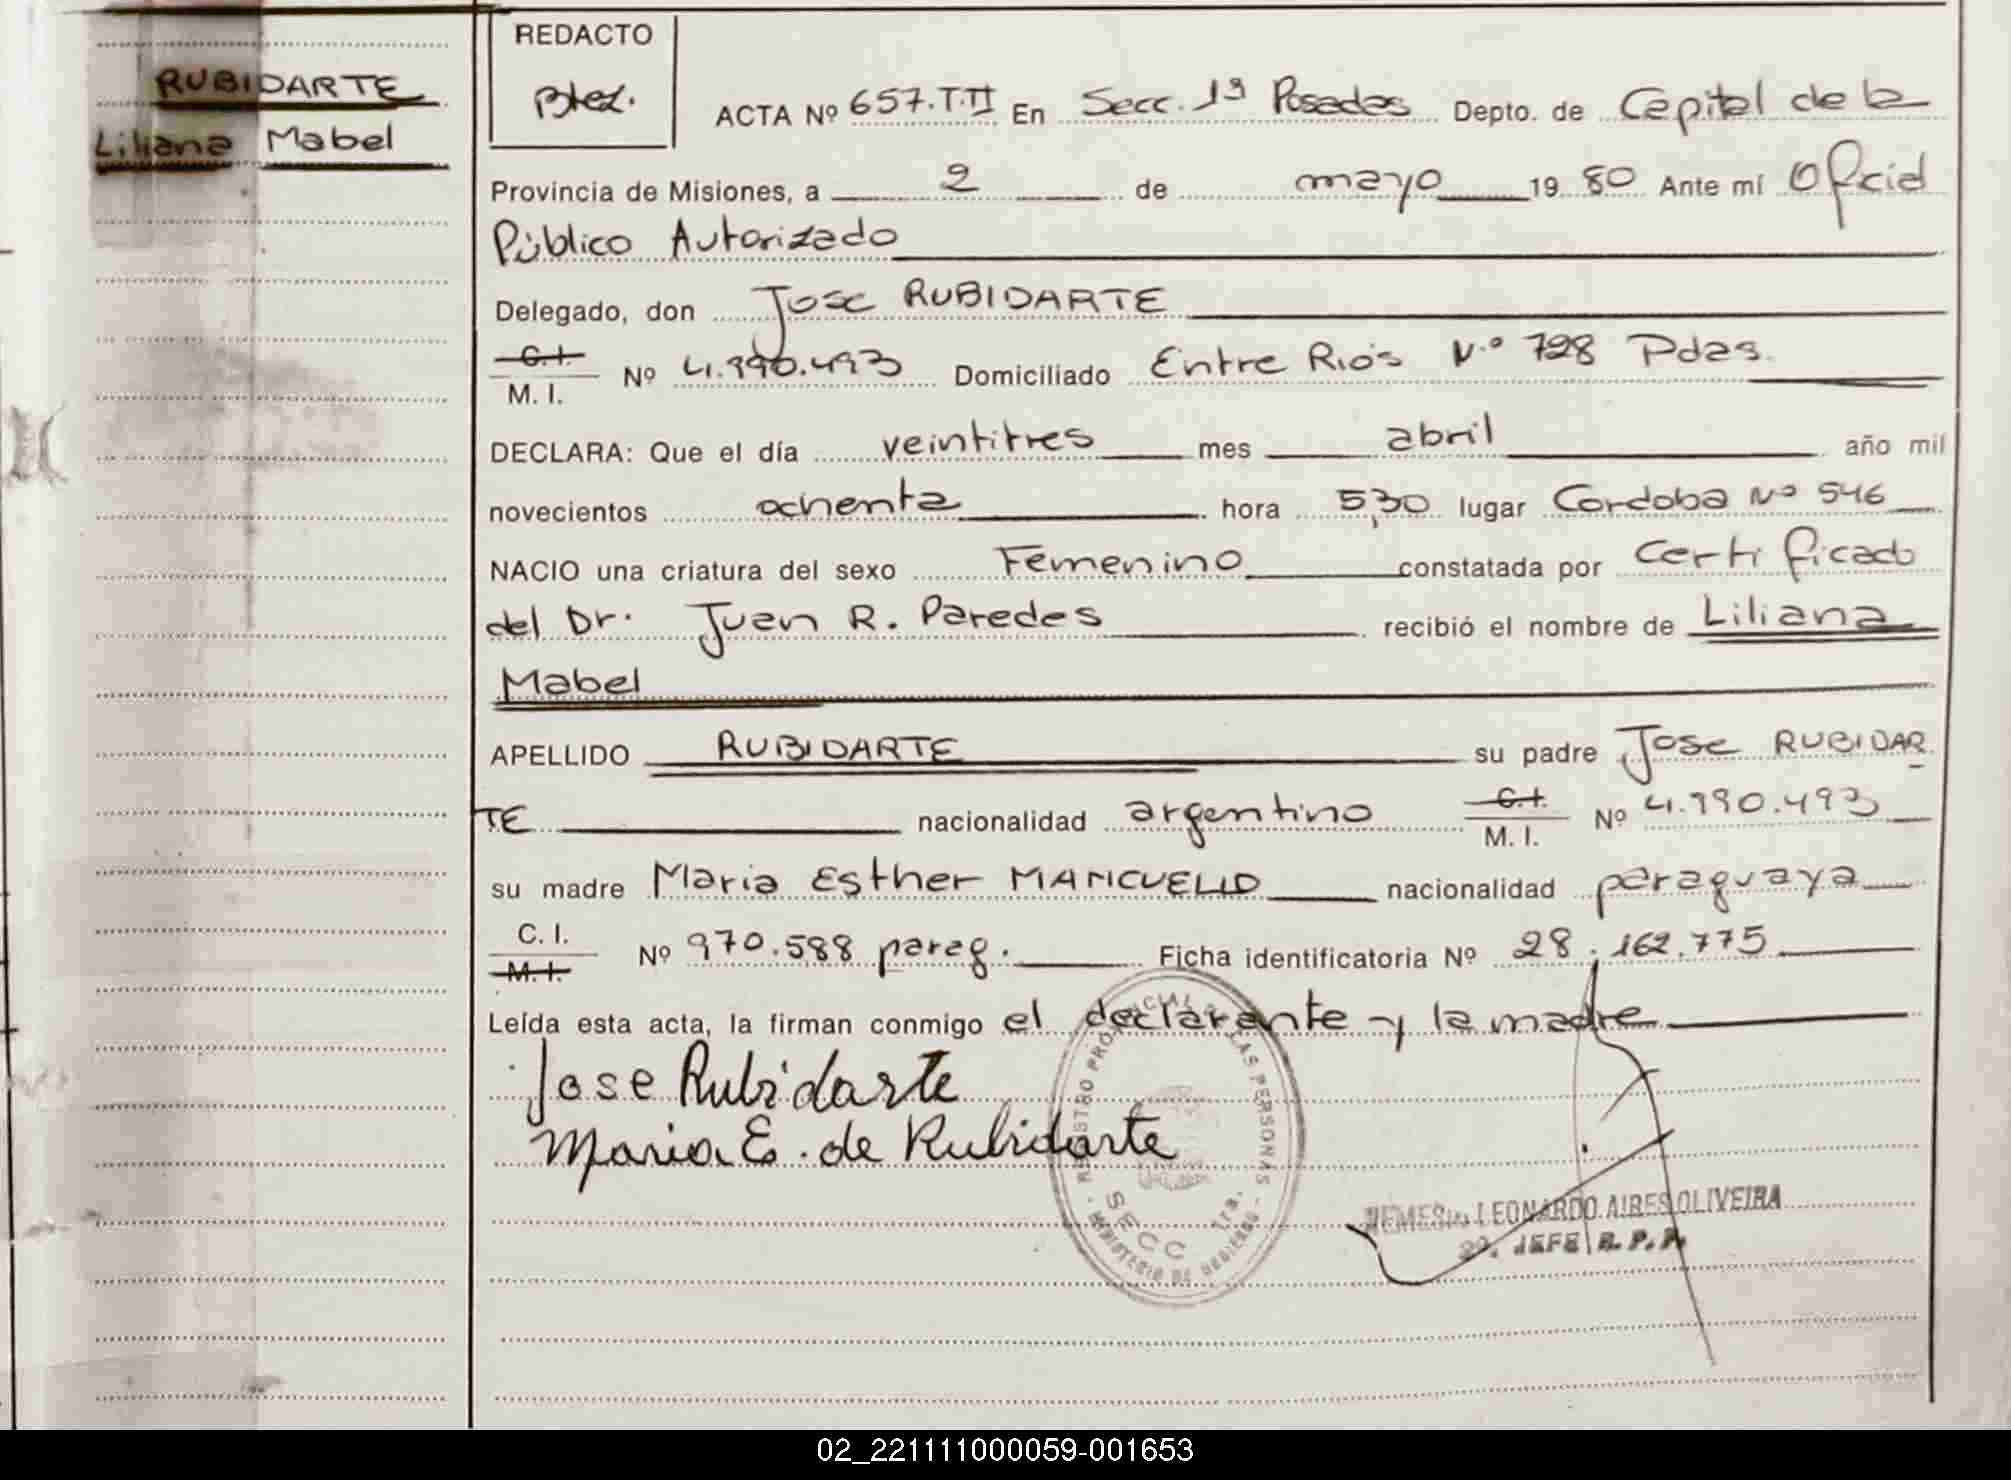 RUBIDARTE
Liliana Mabel
REDACTO
Btez.
ACTA Nº 657.T.II En Secc. 1ª Posadas Depto. de Capital de la
Provincia de Misiones, a 2 de mayo 19 80 Ante mí Oficial
Público Autorizado
Delegado, don Jose RUBIDARTE
C.I. M. I. Nº 4.990.493 Domiciliado Entre Rios N.º 728 Pdas.
DECLARA: Que el día veintitres mes abril año mil
novecientos ochenta hora 5,30 lugar Cordoba Nº 546
NACIO una criatura del sexo Femenino constatada por Certificado
del Dr. Juan R. Paredes recibió el nombre de Liliana
Mabel
APELLIDO RUBIDARTE su padre Jose RUBIDAR
TE nacionalidad argentino C.I. M. I. Nº 4.990.493
su madre Maria Esther MANCUELLO nacionalidad paraguaya
C. I. M.I. Nº 970.588 parag. Ficha identificatoria Nº 28.162.775
Leída esta acta, la firman conmigo el declarante y la madre
Jose Rubidarte
Maria E. de Rubidarte
REGISTRO PROVINCIAL DE LAS PERSONAS
SECC 1ra.
MINISTERIO DE GOBIERNO
LEONARDO AIRES OLIVEIRA
2º. JEFE R. P. P.
02_221111000059-001653